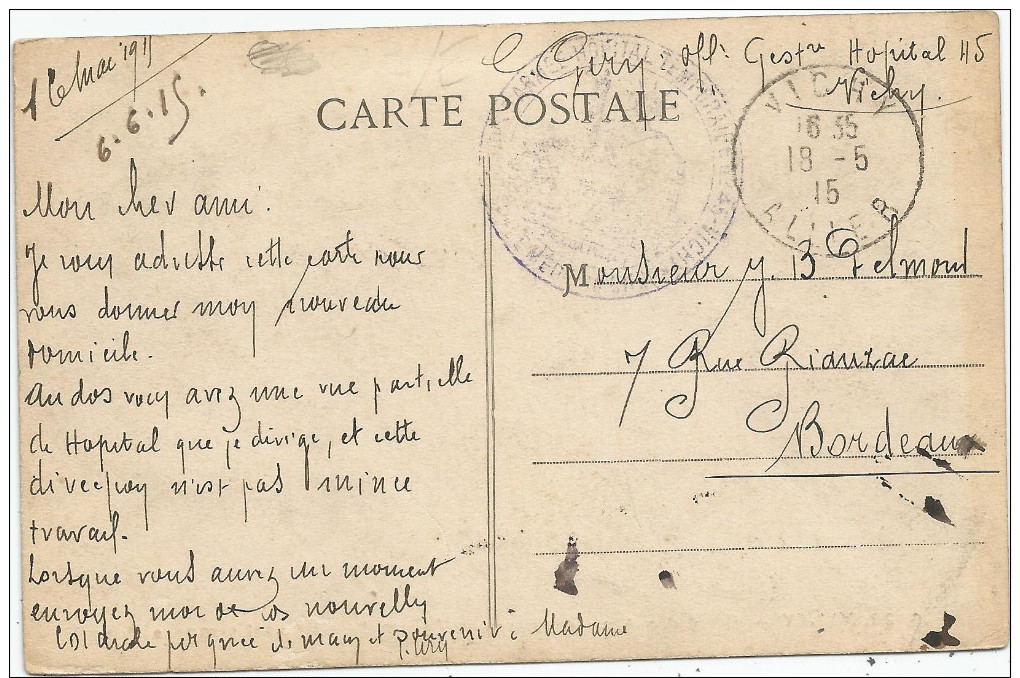 16 mai 1915
6.6.15.
E. Gery off. Gestre Hopital 45
Vichy.
CARTE POSTALE
HOPITAL TEMPORAIRE
VICHY
16 35
18 -5
15
ALLIER
Mon cher ami.
Je vous adresse cette carte pour
vous donner mon nouveau
domicile.
Au dos vous avez une vue partielle
de Hopital que je dirige, et cette
direction n'est pas mince
travail.
Lorsque vous aurez un moment
envoyez moi de vos nouvelles
Cordiale poignée de main et souvenir à Madame
Gery
Monsieur J. B. Delmond
7 Rue
Bordeaux